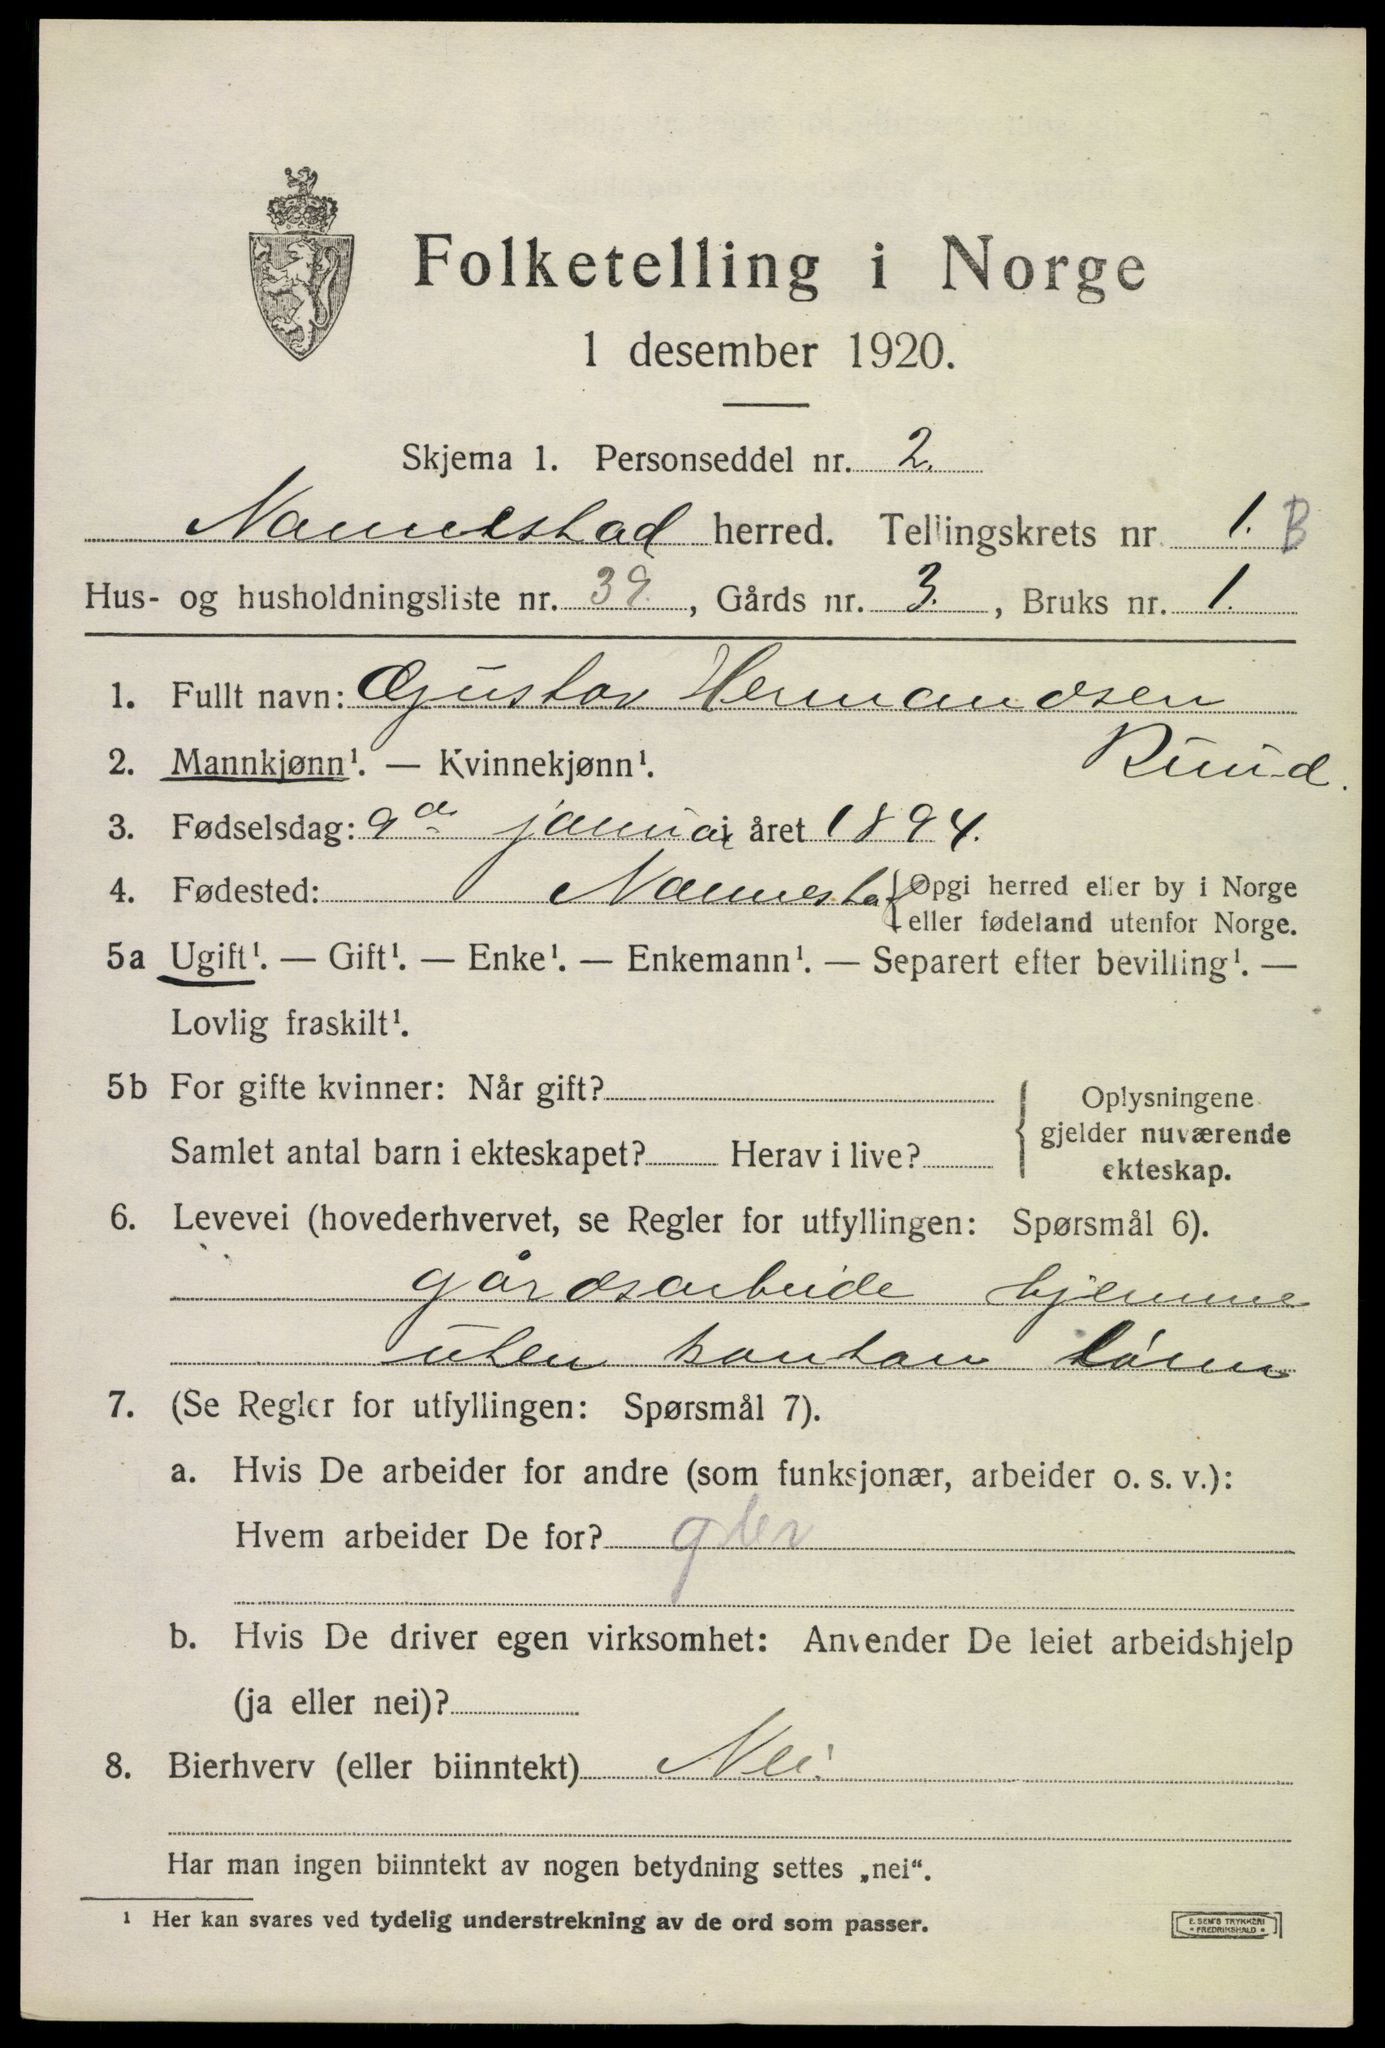 Folketelling i Norge
1 desember 1920.
Skjema 1. Personseddel nr. 2.
Nannestad herred. Tellingskrets nr. 1. B
Hus- og husholdningsliste nr. 39., Gårds nr. 3., Bruks nr. 1.
1. Fullt navn: Gustav Hermandsen
Ruud.
2. Mannkjønn¹. — Kvinnekjønn¹.
3. Fødselsdag: 9de januar i året 1894.
4. Fødested: Nannestad { Opgi herred eller by i Norge
eller fødeland utenfor Norge.
5a Ugift¹. — Gift¹. — Enke¹. — Enkemann¹. — Separert efter bevilling¹. —
Lovlig fraskilt¹.
5b For gifte kvinner: Når gift?
Samlet antal barn i ekteskapet? Herav i live?
Oplysningene
gjelder nuværende
ekteskap.
6. Levevei (hovederhvervet, se Regler for utfyllingen: Spørsmål 6).
gårdsarbeide hjemme
uten kontan lønn
7. (Se Regler for utfyllingen: Spørsmål 7).
a. Hvis De arbeider for andre (som funksjonær, arbeider o. s. v.):
Hvem arbeider De for?
b. Hvis De driver egen virksomhet: Anvender De leiet arbeidshjelp
(ja eller nei)?
8. Bierhverv (eller biinntekt) Nei.
Har man ingen biinntekt av nogen betydning settes „nei“.
¹ Her kan svares ved tydelig understrekning av de ord som passer.
E. SEM'S TRYKKERI
* FREDRIKSHALD *